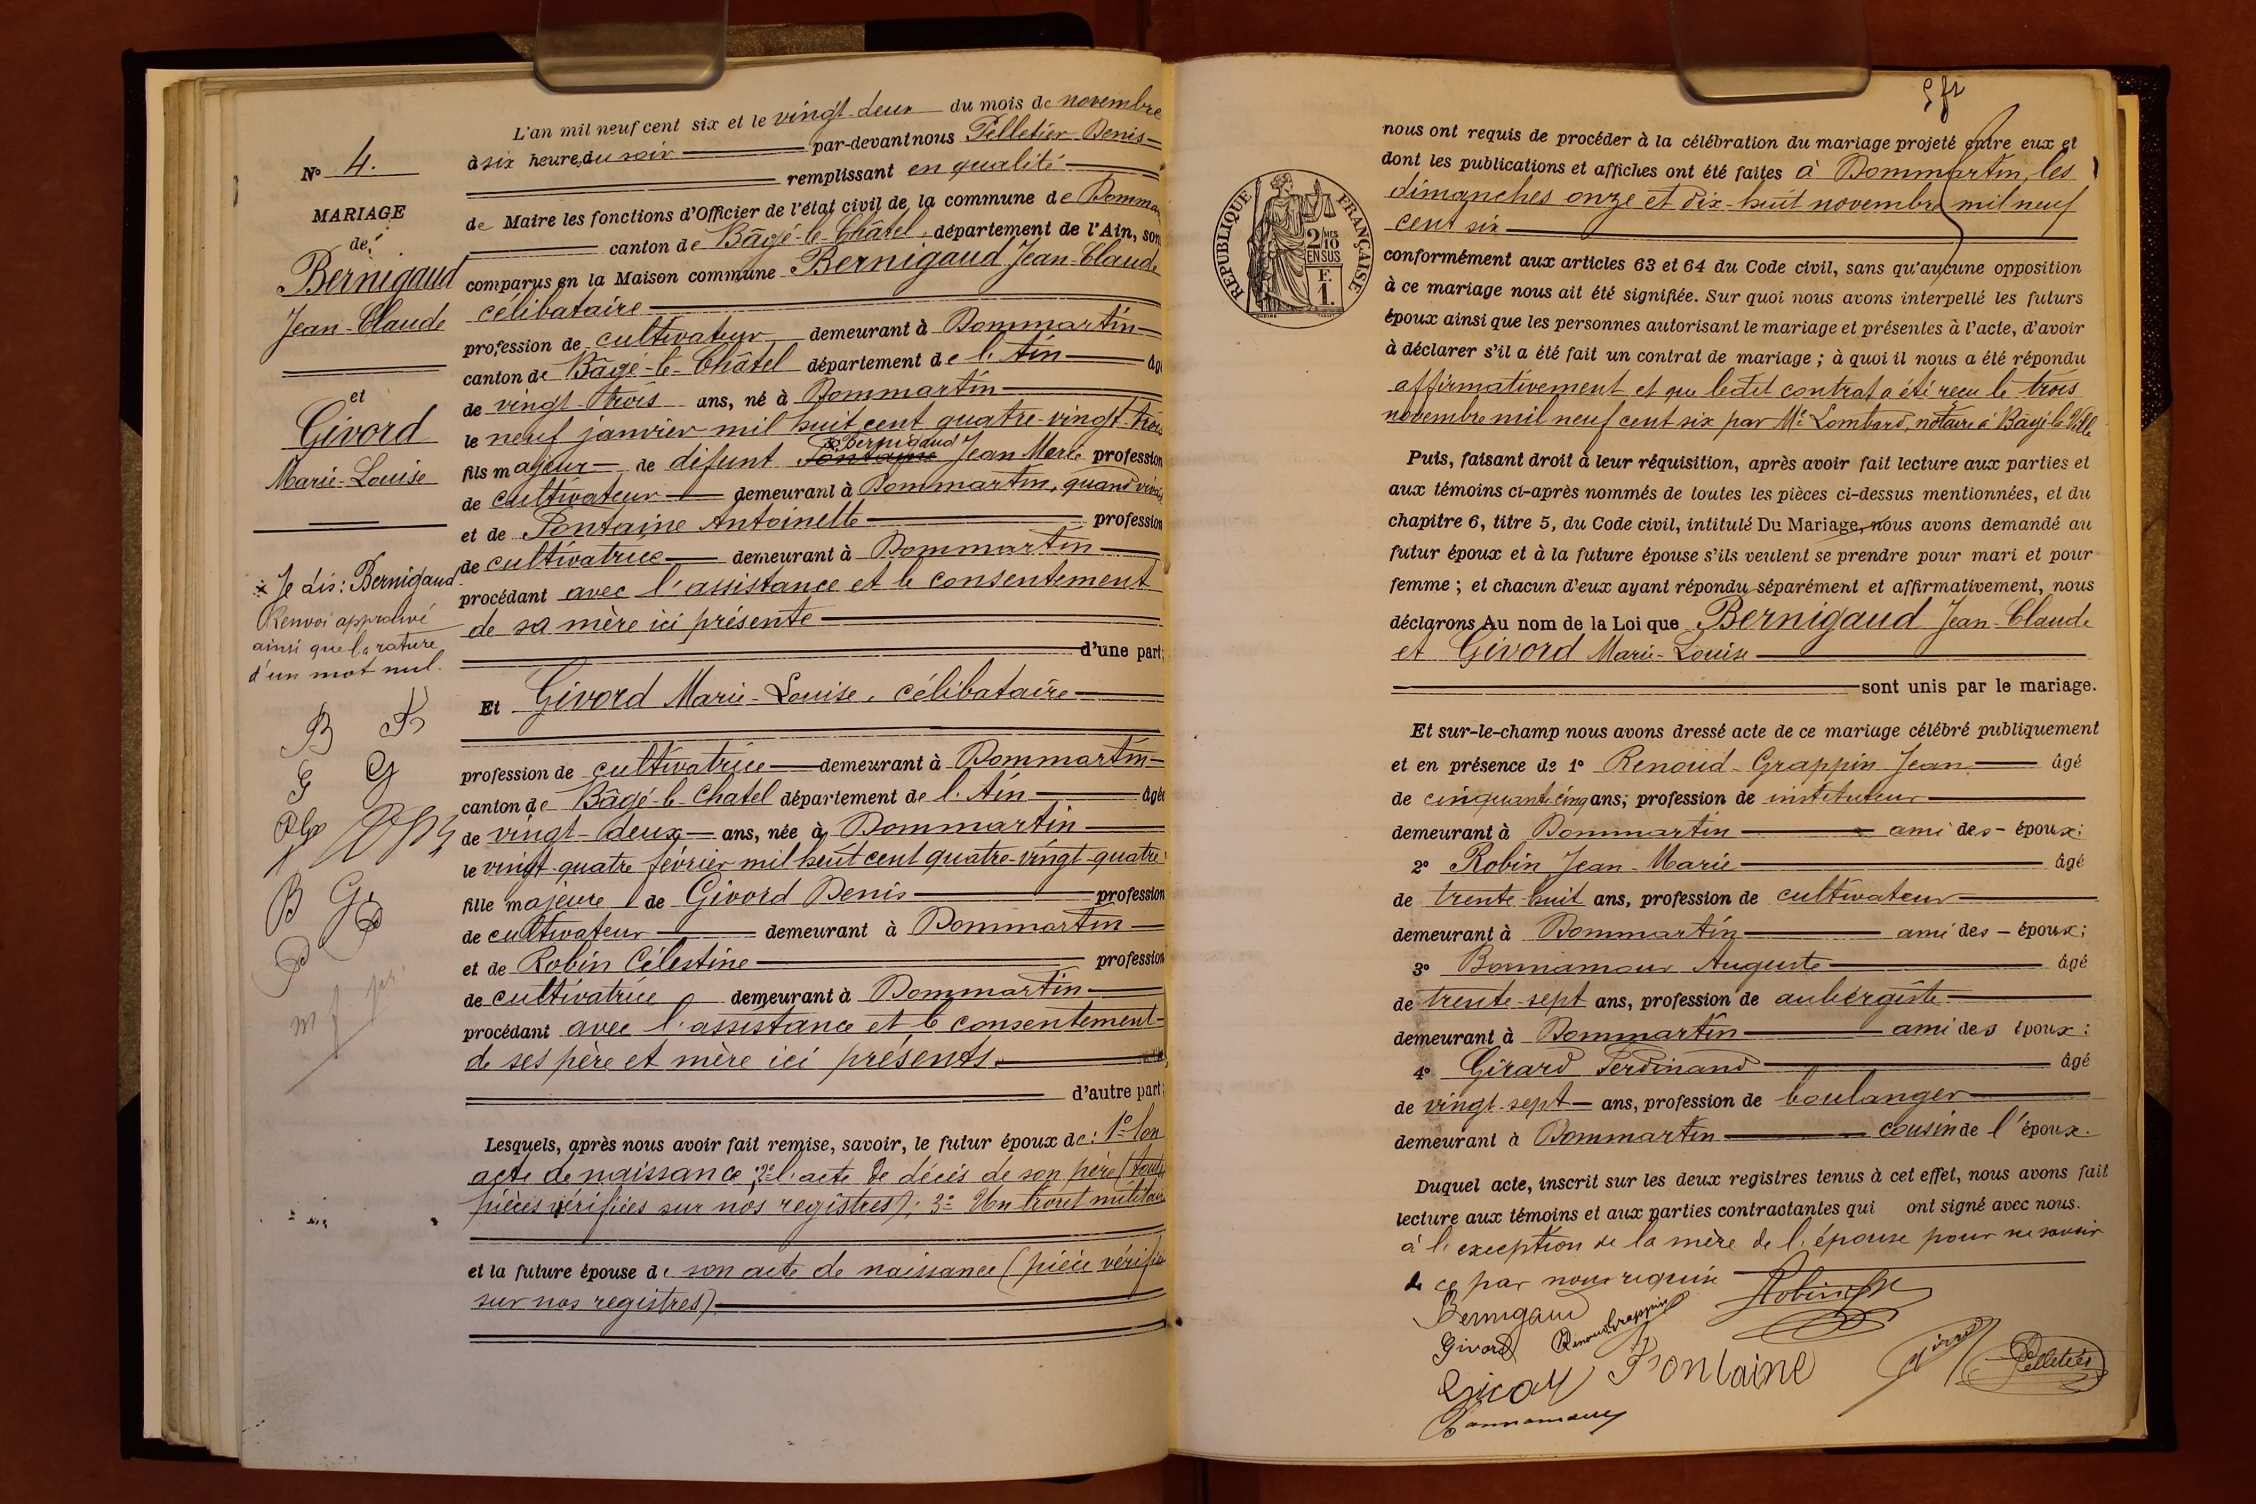 L'an mil neuf cent six et le vingt-deux du mois de novembre
à six heures du soir par-devant nous Pelletier Denis
N° 4. remplissant en qualité
MARIAGE de Maire les fonctions d'Officier de l'état civil de la commune de Domma
de canton de Bâgé-le-Châtel, département de l'Ain, son
Bernigaud comparus en la Maison commune Bernigaud Jean-Claude
Jean-Claude célibataire
profession de cultivateur demeurant à Dommartin
canton de Bâgé-le-Châtel département de l'Ain âgé
et de vingt-trois ans, né à Dommartin
Givord le neuf janvier mil huit cent quatre-vingt-trois
Marie-Louise fils majeur de défunt Fontaine Bernigaud Jean Marie profession
de cultivateur demeurant à Dommartin, quand vivait
et de Fontaine Antoinette profession
de cultivatrice demeurant à Dommartin
x Je dis: Bernigaud. procédant avec l'assistance et le consentement
Renvoi approuvé de sa mère ici présente
ainsi que la rature d'une part;
d'un mot nul.
Et Givord Marie-Louise, célibataire
B F
G G
profession de cultivatrice demeurant à Dommartin
canton de Bâgé-le-Chatel département de l'Ain âgée
de vingt-deux ans, née à Dommartin
le vingt-quatre février mil huit cent quatre-vingt-quatre
B fille majeure de Givord Denis profession
de cultivateur demeurant à Dommartin
et de Robin Célestine profession
de cultivatrice demeurant à Dommartin
procédant avec l'assistance et le consentement
de ses père et mère ici présents.
d'autre part;
Lesquels, après nous avoir fait remise, savoir, le futur époux de: 1° Son
acte de naissance; 2° l'acte de décès de son père (toutes
pièces vérifiées sur nos registres); 3° Un livret militaire
et la future épouse de son acte de naissance (pièce vérifiée
sur nos registres)
nous ont requis de procéder à la célébration du mariage projeté entre eux et
dont les publications et affiches ont été faites à Dommartin, les
dimanches onze et dix-huit novembre mil neuf
cent six
REPUBLIQUE FRANÇAISE
2/10 MES
EN SUS
F.
1.
conformément aux articles 63 et 64 du Code civil, sans qu'aucune opposition
à ce mariage nous ait été signifiée. Sur quoi nous avons interpellé les futurs
époux ainsi que les personnes autorisant le mariage et présentes à l'acte, d'avoir
à déclarer s'il a été fait un contrat de mariage; à quoi il nous a été répondu
affirmativement et que ledit contrat a été reçu le trois
novembre mil neuf cent six par Me Lombard, notaire à Bâgé-la-Ville
Puis, faisant droit à leur réquisition, après avoir fait lecture aux parties et
aux témoins ci-après nommés de toutes les pièces ci-dessus mentionnées, et du
chapitre 6, titre 5, du Code civil, intitulé Du Mariage, nous avons demandé au
futur époux et à la future épouse s'ils veulent se prendre pour mari et pour
femme; et chacun d'eux ayant répondu séparément et affirmativement, nous
déclarons Au nom de la Loi que Bernigaud Jean-Claude
et Givord Marie-Louise
sont unis par le mariage.
Et sur-le-champ nous avons dressé acte de ce mariage célébré publiquement
et en présence de 1° Renoud-Grappin Jean âgé
de cinquante cinq ans; profession de instituteur
demeurant à Dommartin ami des époux;
2° Robin Jean-Marie âgé
de trente-huit ans, profession de cultivateur
demeurant à Dommartin ami des époux;
3° Bonnamour Auguste âgé
de trente-sept ans, profession de aubergiste
demeurant à Dommartin ami des époux;
4° Girard Ferdinand âgé
de vingt-sept ans, profession de boulanger
demeurant à Dommartin cousin de l'époux.
Duquel acte, inscrit sur les deux registres tenus à cet effet, nous avons fait
lecture aux témoins et aux parties contractantes qui ont signé avec nous.
à l'exception de la mère de l'épouse pour ne savoir
de ce par nous requise
Bernigaud
Givord Renoud Grappin
Fontaine
Pelletier
Bonnamour